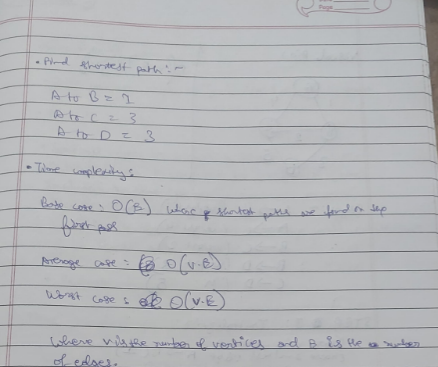 • Find shortest path :-
A to B = 2
A to C = 3
A to D = 3
• Time complexity :
case : O(E) shortest paths
first pass
Average case : O(V.E)
Worst case : O(V.E)
Where V is the number of vertices and E is the number
of edges.